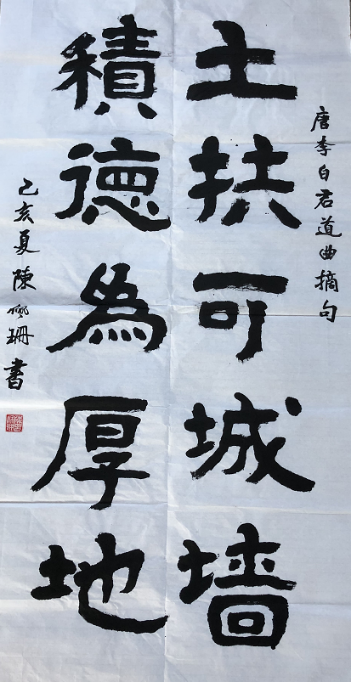 唐李白君道曲摘句
土扶可城墙
積德為厚地
己亥夏陳珊書